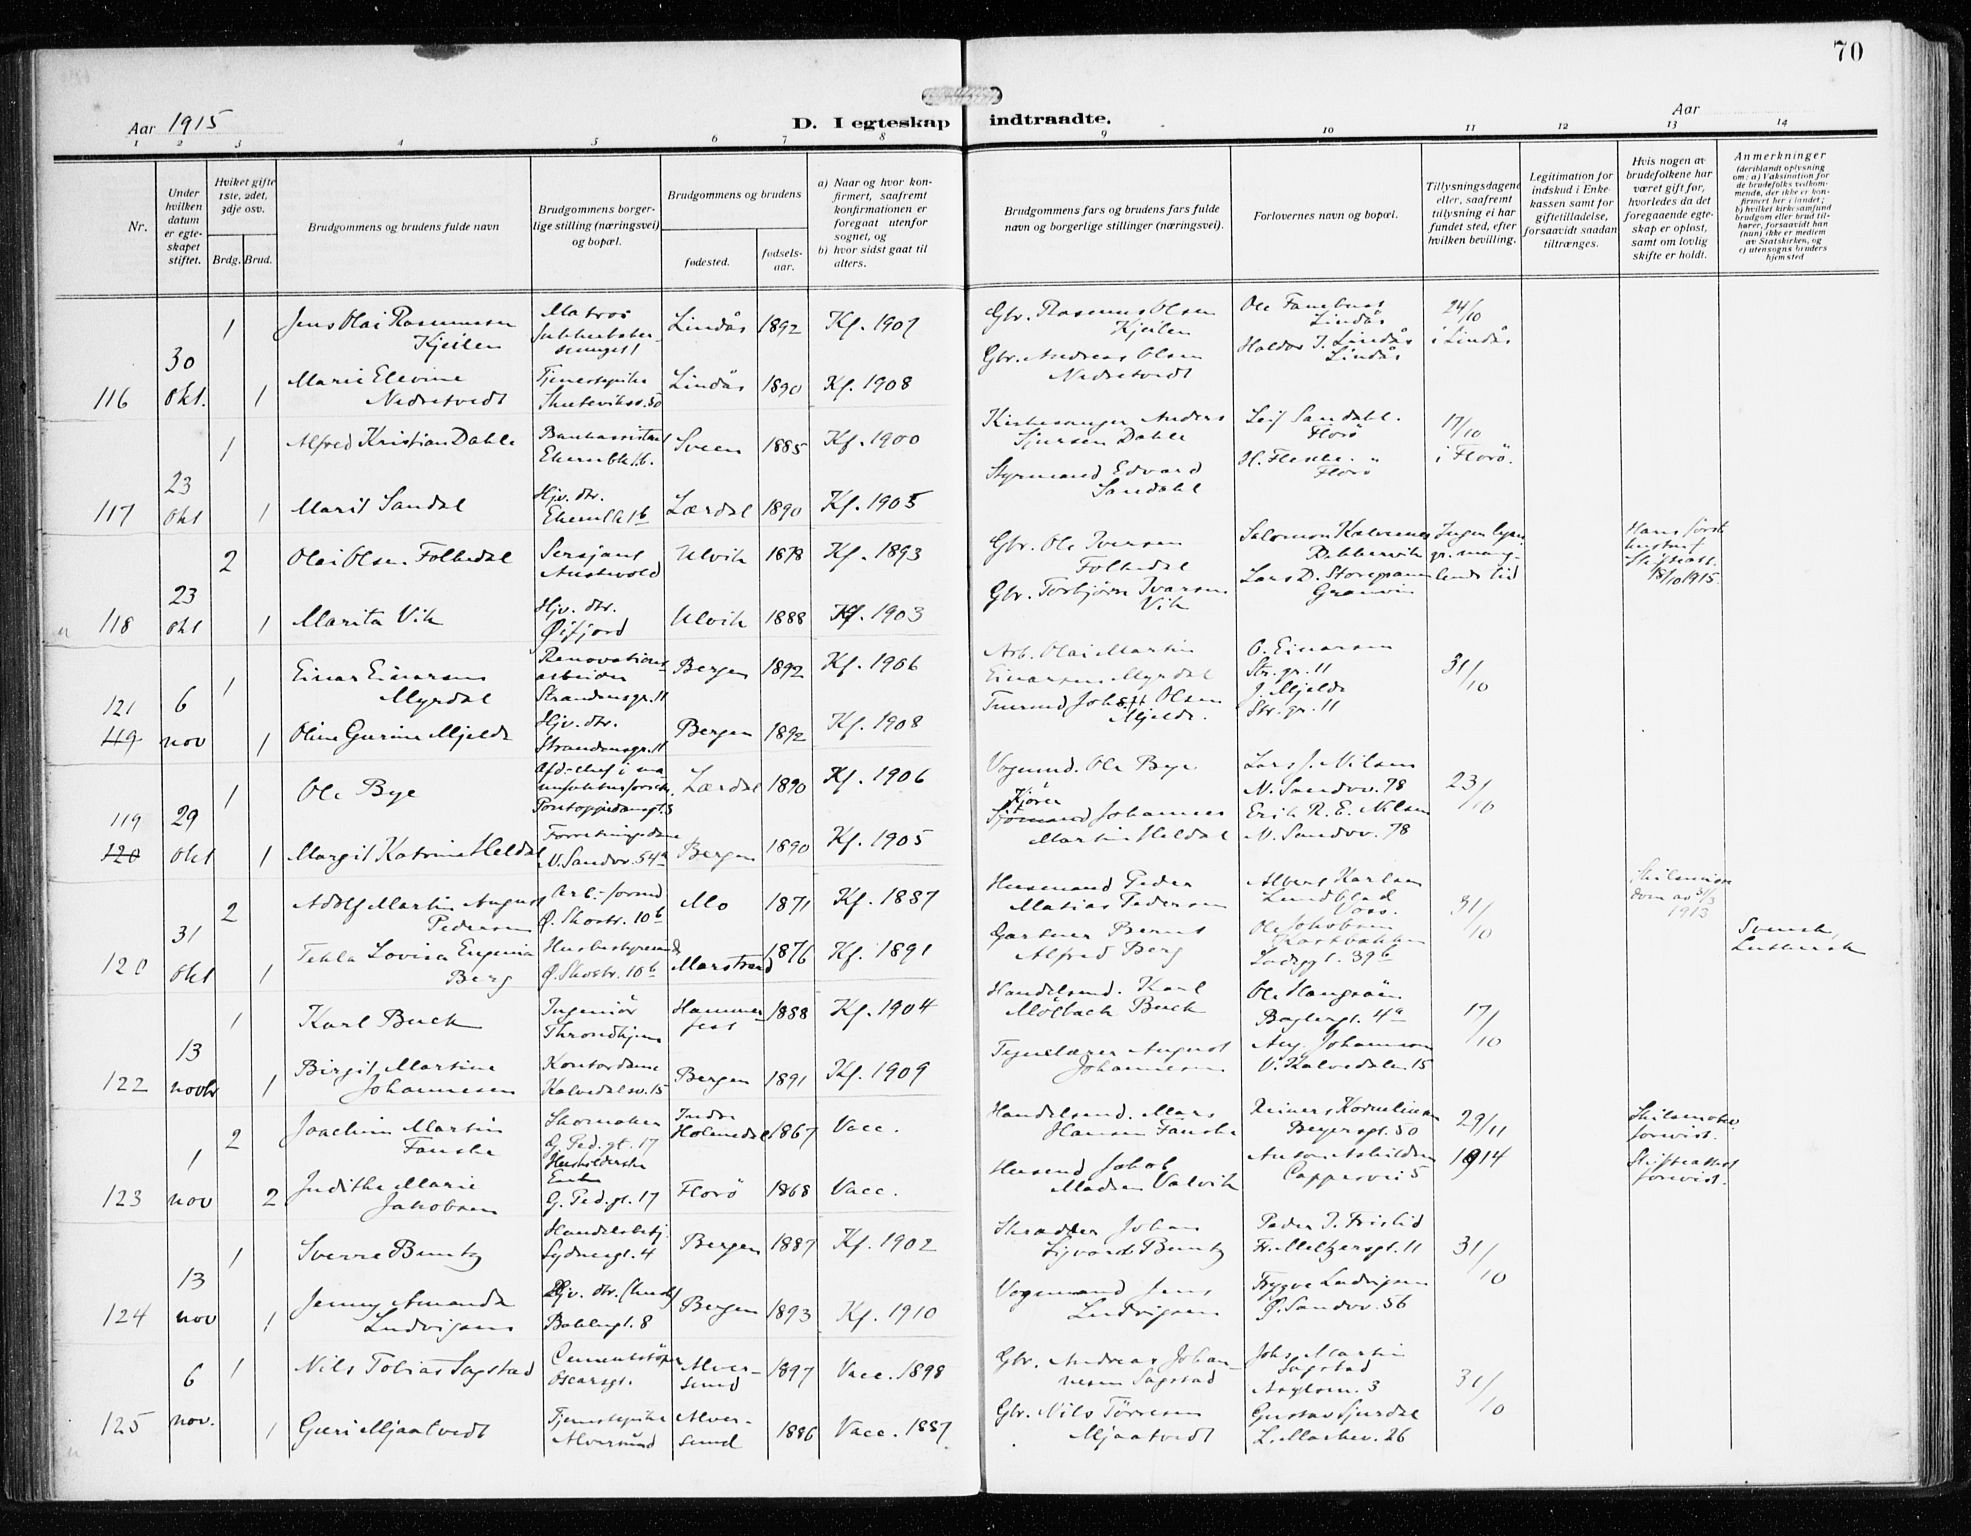 70
Aar 1915
D. I egteskap indtraadte.
Aar
1 2 3 4 5 6 7 8 9 10 11 12 13 14
Nr.
Under hvilken datum er egteskapet stiftet.
Hviket gifte 1ste, 2det, 3dje osv.
Brdg. Brud.
Brudgommens og brudens fulde navn
Brudgommens borgerlige stilling (næringsvei) og bopæl.
Brudgommens og brudens
fødested.
fødselsaar.
a) Naar og hvor konfirmert, saafremt konfirmationen er foregaat utenfor sognet, og
b) hvor sidst gaat til alters.
Brudgommens fars og brudens fars fulde navn og borgerlige stillinger (næringsvei).
Forlovernes navn og bopæl.
Tillysningsdagene eller, saafremt tillysning ei har fundet sted, efter hvilken bevilling.
Legitimation for indskud i Enkekassen samt for giftetilladelse, forsaavidt saadan tiltrænges.
Hvis nogen av brudefolkene har været gift før, hvorledes da det foregaaende egteskap er opløst, samt om lovlig skifte er holdt.
Anmerkninger
(deriblandt oplysning om: a) Vaksination for de brudefolks vedkommende, der ikke er konfirmert her i landet; b) hvilket kirkesamfund brudgom eller brud tilhører, forsaavidt han (hun) ikke er medlem av Statskirken, og c) utensogns bruders hjemsted
1 Jens Olai Rasmussen Kjeilen Matros Lindås 1892 Kf. 1907 Gbr. Rasmus Olsen Kjeilen Ole Fanebust Lindås 24/10
116 30 Okt. 1 Marie Elevine Nedretvedt Tjenestepike Skuteviksv. 50 Lindås 1890 Kf. 1908 Gbr. Andreas Olsen Nedretvedt Haldor J. Lindås Lindås i Lindås
1 Alfred Kristian Dahle Bankassistent Sveen 1885 Kf. 1900 Kirkesanger Anders Sjursen Dahle Leif Sandahl. Florø 17/10
117 23 Okt 1 Marit Sandal Hjv. dtr. Lærdal 1890 Kf. 1905 Styrmand Edvard Sandahl H. Flesche. " Florø i Florø.
2 Olai Olsen Folkedal Sersjant Austevold Ulvik 1878 Kf. 1893 Gbr. Ole Iversen Folkedal Salomon Kalvenes Ingen lysn gr. mang- Hans første hustru † Skifteatt. 18/10 1915.
118 23 okt 1 Marita Vik Hjv. dtr. Øifjord Ulvik 1888 Kf. 1903 Gbr. Torbjørn Ivarsen Vik Lars D. Storegraven Granvin lende tid
1 Einar Einarsen Myrdal Renovationsarbeider Strandensgr. 11 Bergen 1892 Kf. 1906 Arb. Olai Martin Einarsen Myrdal O. Einarsen Str. gr. 11 31/10
121 119 6 nov 1 Oline Gurine Mjelde Hjv. dtr. Strandensgr. 11 Bergen 1892 Kf. 1908 Olsen Mjelde. J. Mjelde Str. gr. 11
1 Ole Bye Lærdal 1890 Kf. 1906 Vognmd. Ole Bye Lars J. Nilsen N. Sandvv. 78 23/10
119 120 29 Okt 1 Margit Katrine Heldal Forretningsdame N. Sandvv. 54a Bergen 1890 Kf. 1905 Kjører Johannes Martin Heldal Erik R. E. Nilsen N. Sandvv. 78
2 Adolf Martin August Pedersen Arb.-formd Ø. Skostr. 10b Mo 1871 Kf. 1887 Husmand Peder Matias Pedersen Albert Karlsen Lundblad Voss. 31/10 1913
120 31 Okt 1 Tekla Lovisa Eugenia Berg Husbestyrerinde Ø. Skostr. 10b Marstrand 1876 Kf. 1891 Gartner Bernt Alfred Berg Ole Jakobsen Ladegt. 39b Svensk, Luthersk
1 Karl Buck Ingeniør Throndhjem Hammerfest 1888 Kf. 1904 Handelsmd. Karl Mølbach Buck Ole Haugsøen Baglergt. 4a 17/10
122 13 novbr 1 Birgit Martine Johannesen Kontordame Kalvedalsv. 15 Bergen 1891 Kf. 1909 Tegnelærer August Johannesen Aug. Johannesen V. Kalvedalen 15
2 Joachim Martin Fanske Skomaker G. Ped. gt. 17 Indre Holmedal 1867 Vacc. Handelsmd. Mars Hansen Fanske Reinert Kornelius Beyersgt. 50 29/11 Skilsmisse forevist.
123 1 nov 2 Judithe Marie Jakobsen Husholderske Enke G. Ped. gt. 17 Florø 1868 Vacc. Husmd Jakob Madsen Valvik Anton Askildsen Cappesvei 5 1914 Skifteattest forevist.
1 Sverre Buntz Handelsbetj. Sydnesgt. 4 Bergen 1887 Kf. 1902 Skrædder Johan Sigvard Buntz Peder J. Fristid Fr. Meltzersgt. 11 31/10
124 13 nov 1 Jenny Amanda Ludvigsen Hjv. dtr. Bakkegt. 8 Bergen 1893 Kf. 1910 Vognmand Jens Ludvigsen Trygve Ludvigsen Ø. Sandvv. 56
1 Nils Tobias Sagstad Cementstøper Oscarsgt. Alversund 1897 Vacc. 1898 Gbr. Andreas Johannesen Sagstad Johs. Martin Sagstad Asylsm. 3 31/10
125 6 nov. 1 Guri Mjaatvedt Tjenestepike Alversund Alversund 1886 Vacc. 1887 Gbr. Nils Tørresen Mjaatvedt Gustav Sjurdal L. Markev. 26